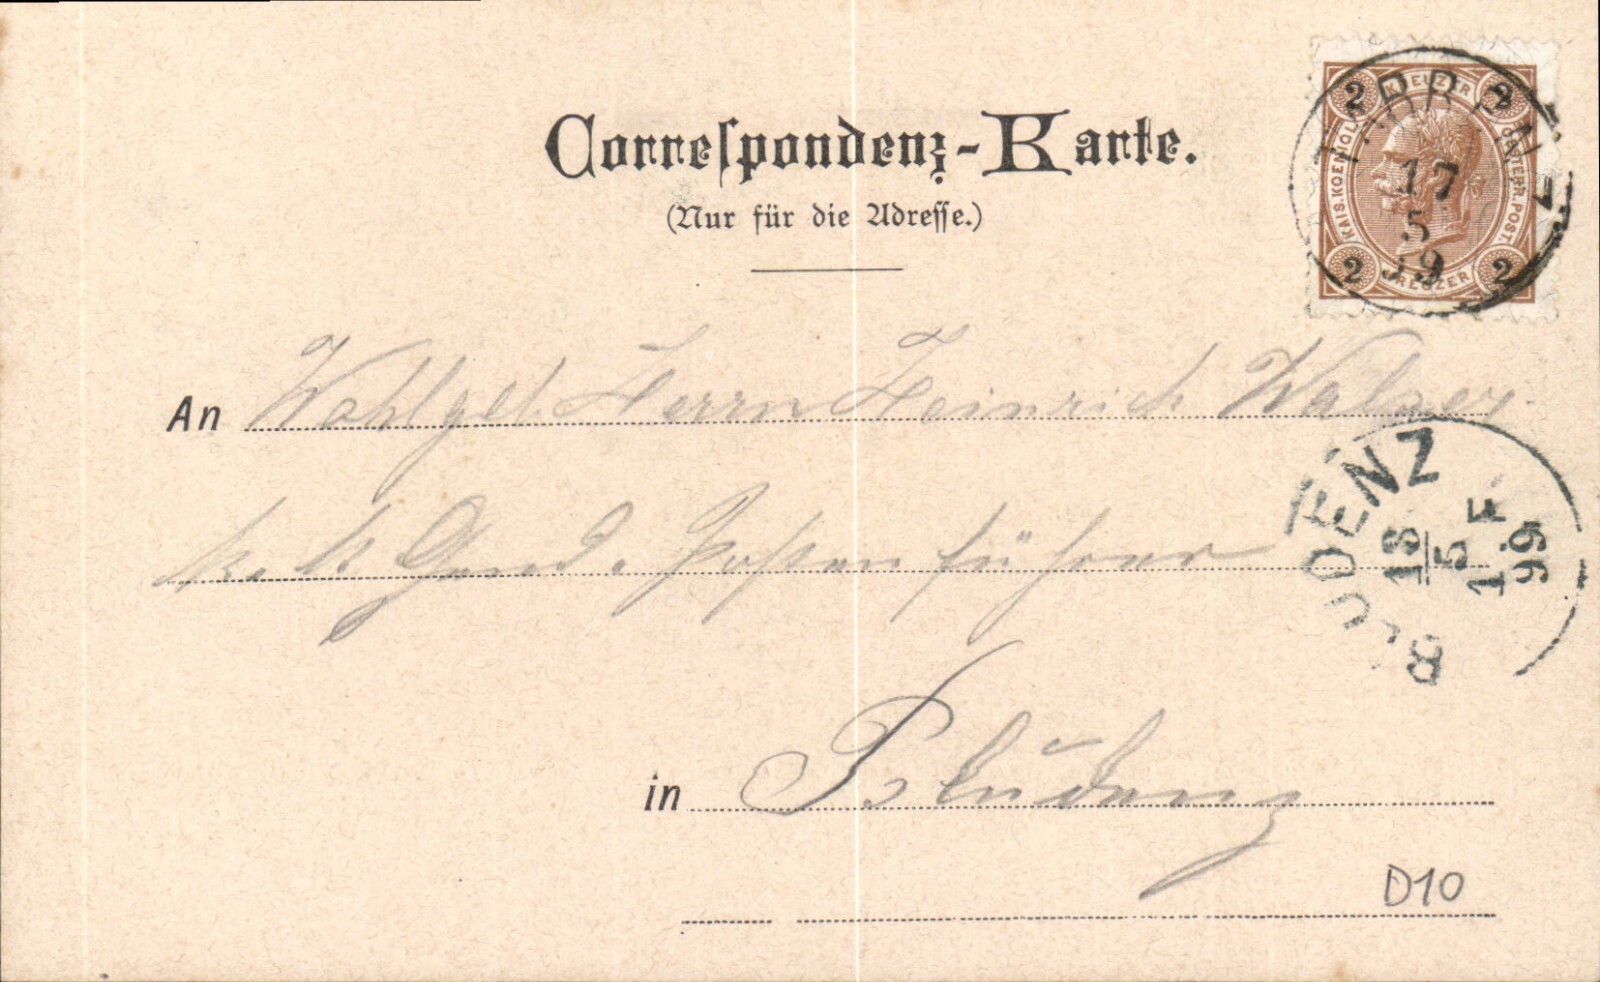 Correspondenz-Karte.
(Nur für die Adresse.)
2 KREUZER 2
KAIS. KOENIGL. OESTERR. POST.
2 KREUZER 2
TARRENZ
17
5
99
An Wohlgeb. Herrn Heinrich Walser
k. k. Gend. Postenführer
BLUDENZ
18
5
1. F
99
in Bludenz
D10